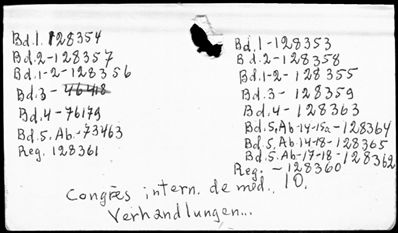 Bd.1. 128354
Bd.2-128357
Bd.1-2-128356
Bd.3-46418
Bd.4-76179
Bd.5.Ab.-73463
Reg. 128361
Bd.1-128353
Bd.2-128358
Bd.1-2-128355
Bd.3-128359
Bd.4-128363
Bd.5,Ab-14-15a-128364
Bd.5.Ab-14-18-128365
Bd.5.Ab-17-18-128362
Reg. -128360
Congrès intern. de méd., 10.
Verhandlungen...